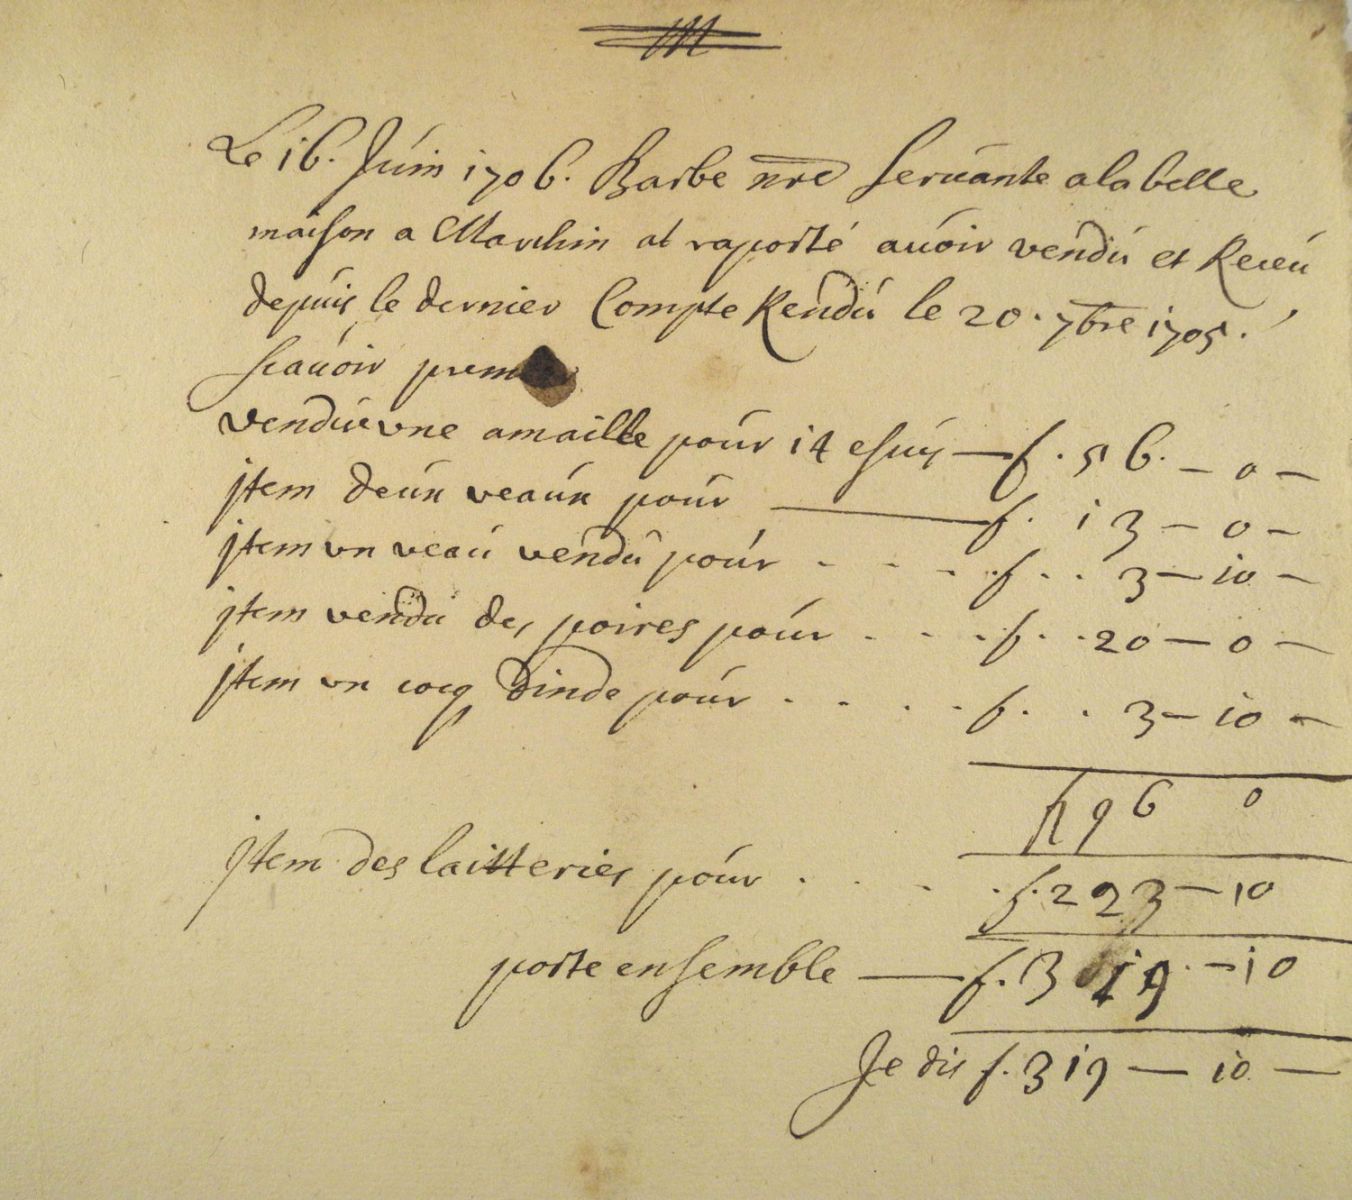 Le 16. Juin 1706. Barbe nre servante a la belle
maison a Marchin at raporté avoir vendu et Receu
depuis le dernier Compte Rendu le 20. 7bre 1705.
scavoir prem
vendu une amaille pour 14 escus — f. 56. — 0 —
jtem deux veaux pour — f. 13 — 0 —
jtem un veau vendu pour . . . f. . . 3 — 10 —
jtem vendu des poires pour . . . f. . . 20 — 0 —
jtem un cocq dinde pour . . . . f. . . 3 — 10 —
f 96 0
jtem des laitteries pour . . . . f. 223 — 10
porte ensemble — f. 319. — 10
Je dis f. 319 — 10 —